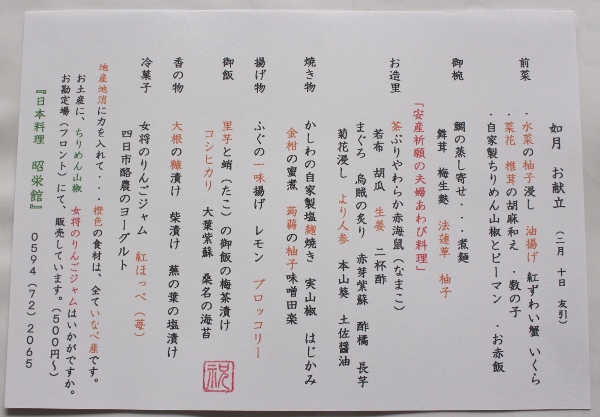 如月 お献立 (二月 十日 友引)
前菜 ・水菜の柚子浸し 油揚げ 紅ずわい蟹 いくら
・菜花 椎茸の胡麻和え ・数の子
・自家製ちりめん山椒とピーマン ・お赤飯
御椀 鯛の蒸し寄せ・・・煮麺
舞茸 梅生麩 法蓮草 柚子
『安産祈願の夫婦あわび料理』
お造里 茶ぶりやわらか赤海鼠(なまこ)
若布 胡瓜 生姜 二杯酢
まぐろ 烏賊の炙り 赤芽紫蘇 酢橘 長芋
菊花浸し より人参 本山葵 土佐醤油
焼き物 かしわの自家製塩麹焼き 実山椒 はじかみ
金柑の蜜煮 蒟蒻の柚子味噌田楽
揚げ物 ふぐの一味揚げ レモン ブロッコリー
御飯 里芋と蛸(たこ)の御飯の梅茶漬け
コシヒカリ 大葉紫蘇 桑名の海苔
香の物 大根の糠漬け 柴漬け 蕪の葉の塩漬け
冷菓子 女将のりんごジャム 紅ほっぺ(苺)
四日市酪農のヨーグルト
地産地消に力を入れて・・・橙色の食材は、全ていなべ産です。
お土産に、ちりめん山椒 女将のりんごジャムはいかがですか。
お勘定場(フロント)にて、販売しています。(500円~)
『日本料理 昭栄館』 0594(72)2065
祝